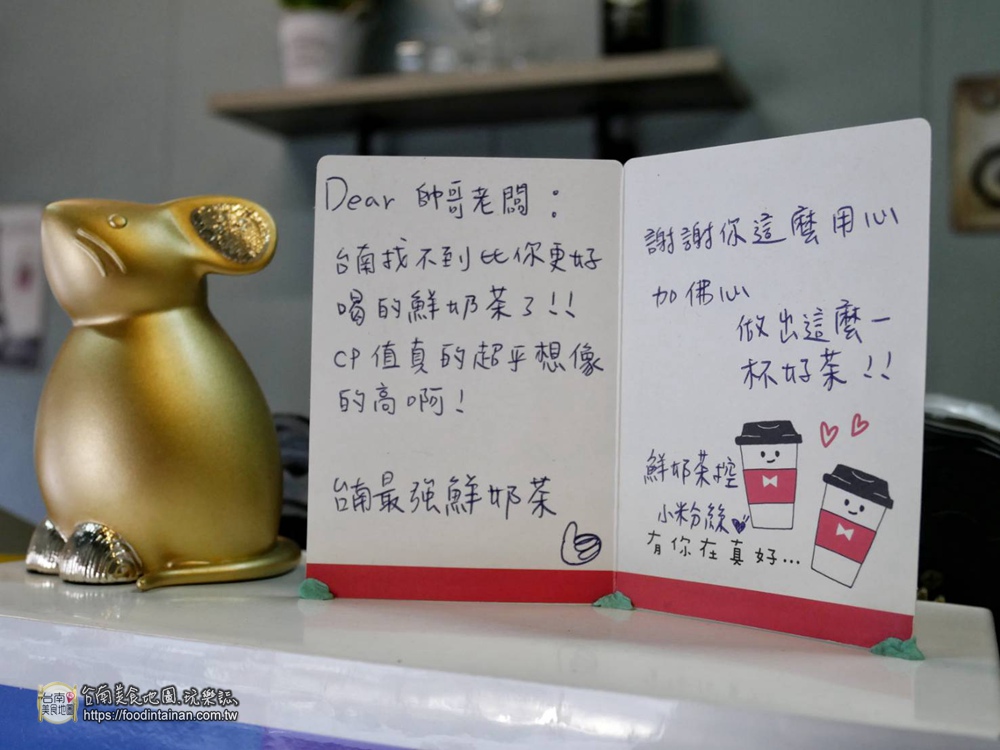 Dear 帥哥老闆：
台南找不到比你更好
喝的鮮奶茶了!!
CP值真的超乎想像
的高啊!
台南最強鮮奶茶
謝謝你這麼用心
加佛心
做出這麼一
杯好茶!!
鮮奶茶控
小粉絲
有你在真好...
台南
美食地圖
台南美食地圖.玩樂誌
https://foodintainan.com.tw